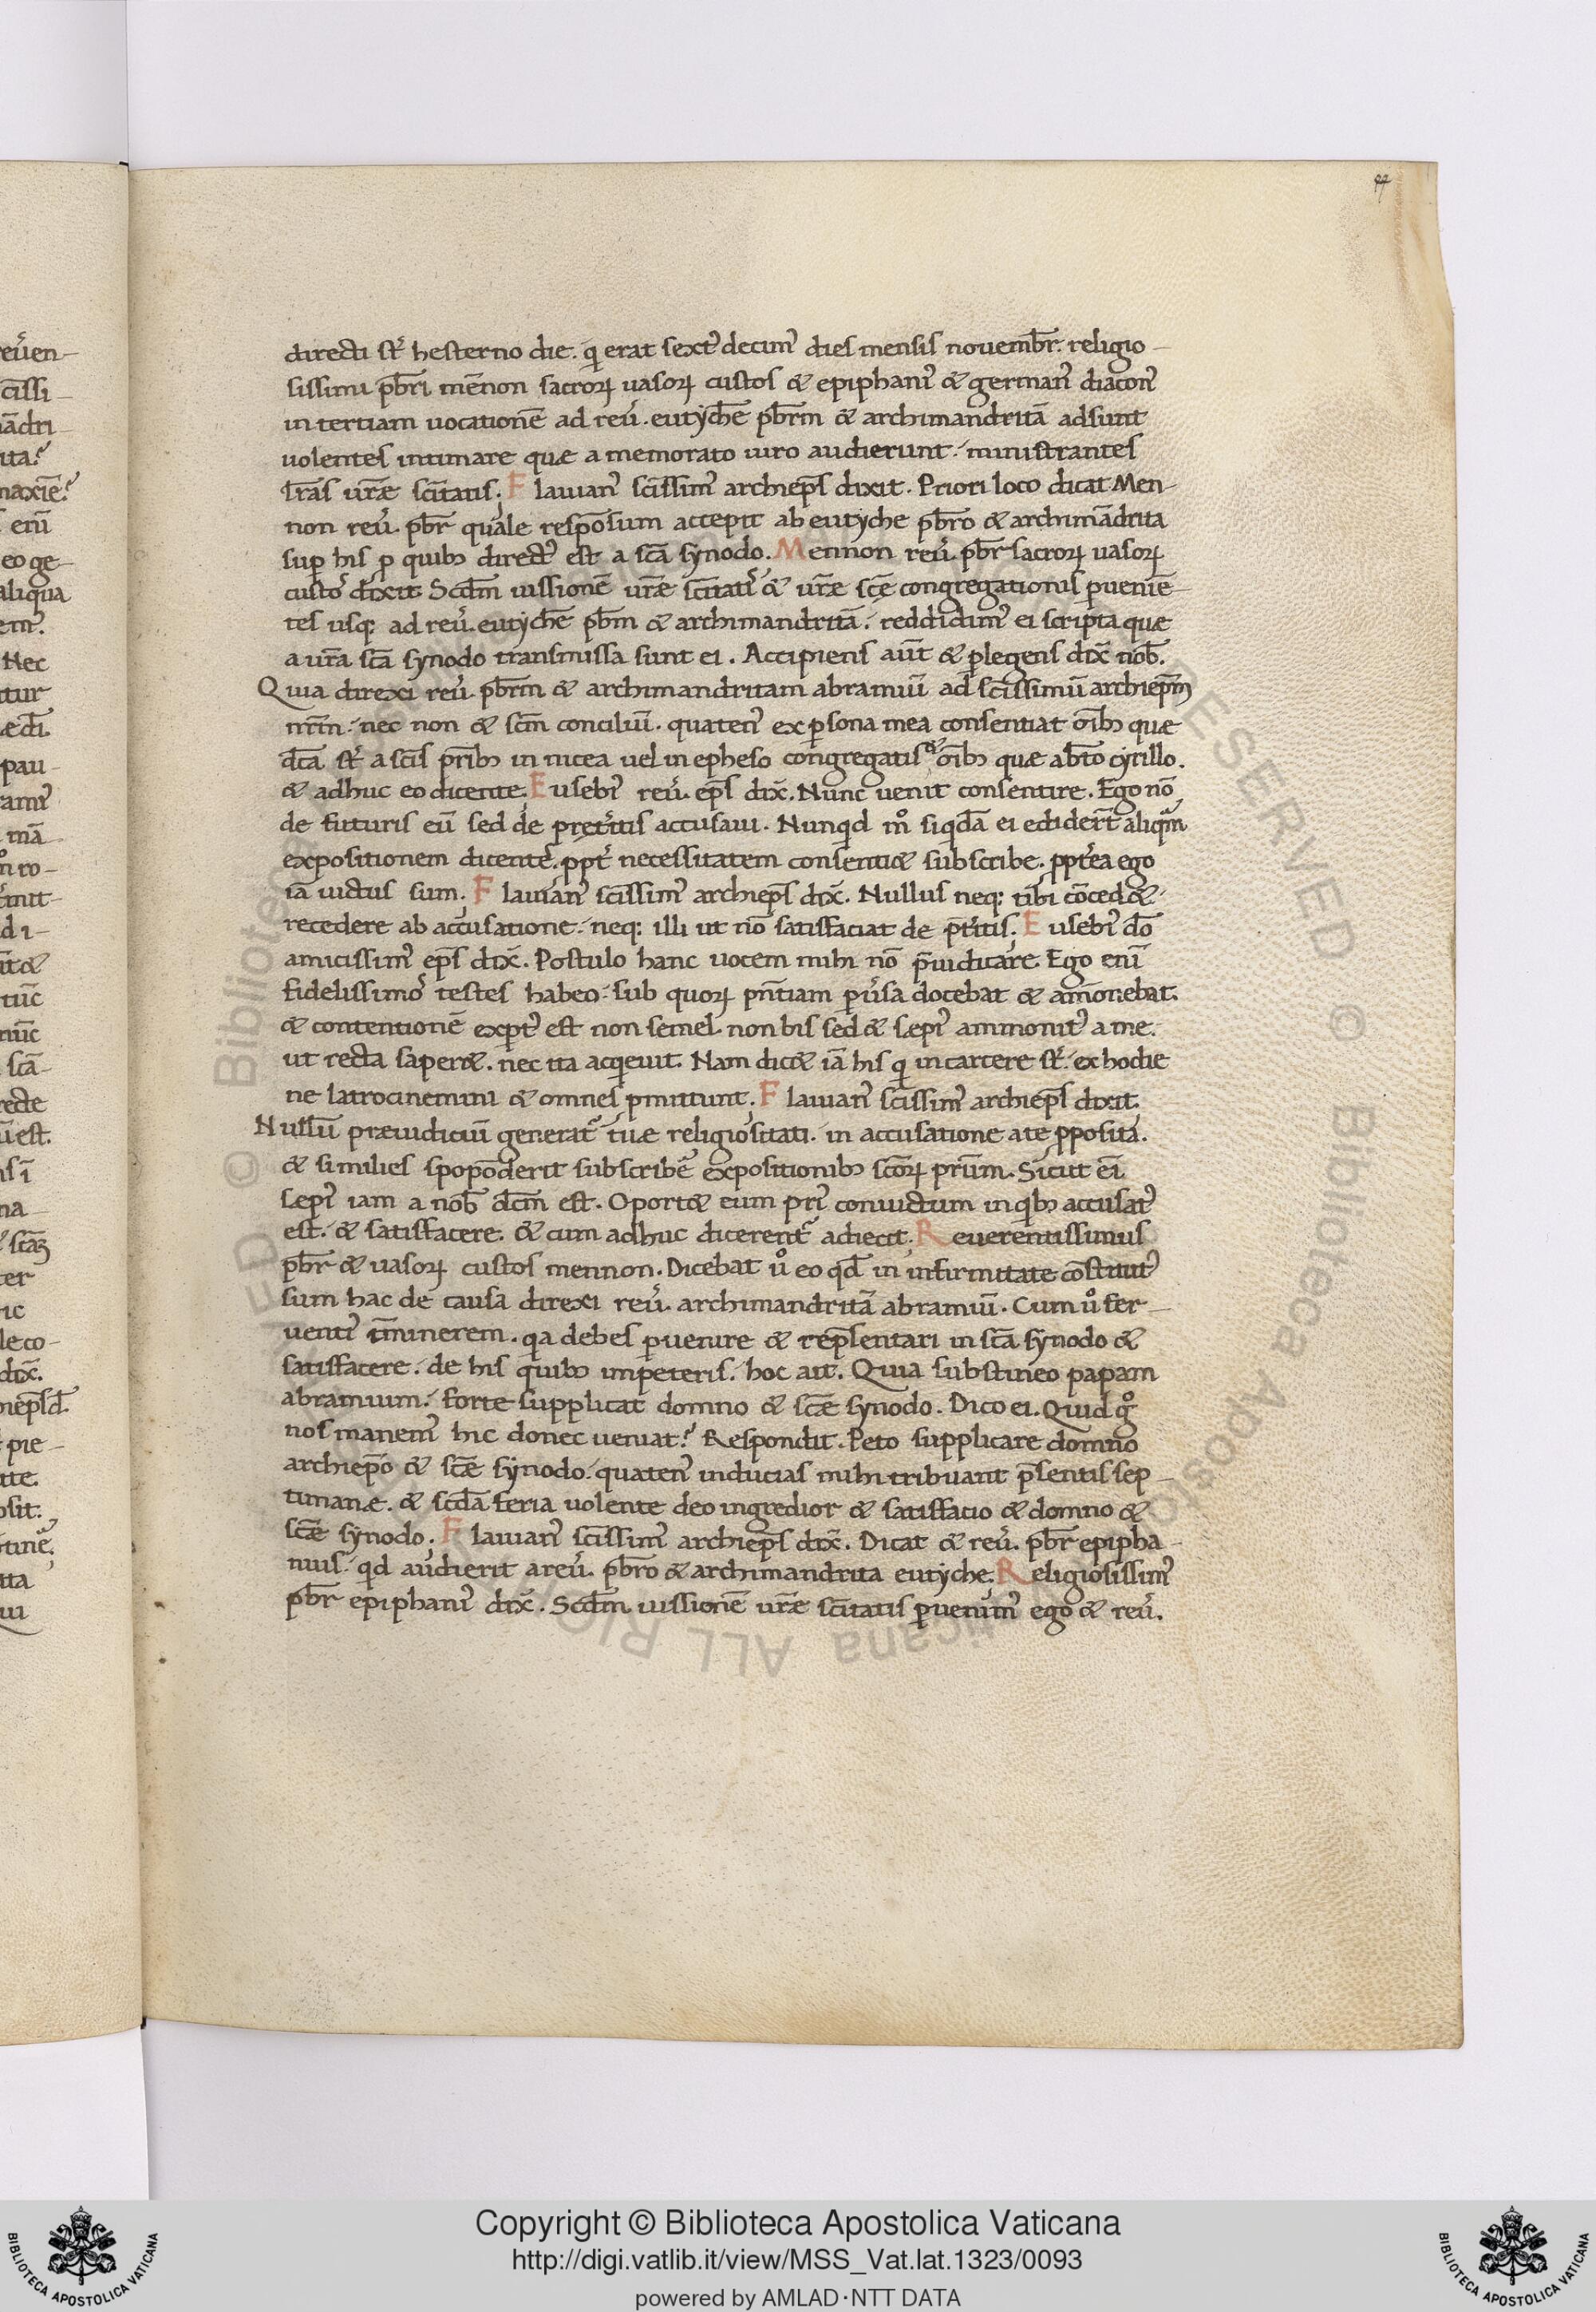 97
directi st̄ hesterno die. q̇ erat sext᾽ decim᾽ dies mensis nouemb̄r. religio-
sissimi p̄bri mēnon sacroꝝ uasoꝝ custos & epiphani᾽ & german᾽ diacon᾽
in tertiam uocationē ad reū. eutychē p̄brm & archimandritā adsunt
uolentes intimare quæ a memorato uiro audierunt. ministrantes
l̄ras ur̄æ sc̄itatis. Flauian᾽ sc̄issim᾽ archiep̄s dixit. Priori loco dicat Men-
non reū. p̄br quale respōsum accepit ab eutyche p̄bro & archimādrita
sup his ꝓ quib; direct᾽ est a sc̄a synodo. Mennon reū. p̄br sacroꝝ uasoꝝ
custo᾽ dixit. Sc̄dm iussionē ur̄æ sc̄itati᾽ & ur̄æ sc̄ę congregationis ꝑueniē-
tes usq; ad reū. eutychē p̄bm & archimandritā. reddidim᾽ ei scripta quæ
a ur̄a sc̄a synodo transmissa sunt ei. Accipiens aūt & ꝑlegens dix̄ nob̄.
Quia direxi reū. p̄brm & archimandritam abramiū ad sc̄issimū archiep̄m
nr̄m. nec non & sc̄m conciliū. quaten᾽ ex ꝑsona mea consentiat oīb; quæ
dc̄a st̄ a sc̄is pr̄ib; in nicea uel in epheso congregatis & oīb; quæ ab̄to cyrillo.
& adhuc eo dicente. Eusebi᾽ reū. ep̄s dix̄. Nunc uenit consentire. Ego nō
de futuris eū sed de preteritis accusaui. Nunqid m̊ siqdā ei edidert̄ aliqām
expositionem dicente᾽. ꝓpt̄ necessitatem consenti& subscribe. ꝓpt̄ea ego
iā uictus sum. Flauian᾽ sc̄issim᾽ archiep̄s dix̄. Nullus neq; tibi cōced&
recedere ab accusatione. neq; illi ut nō satisfaciat de p̄t̄itis. Eusebi᾽ dō
amicissim᾽ ep̄s dix̄. Postulo hanc uocem mihi nō p̄iudicare. Ego enī
fidelissimo᾽ testes habeo. sub quoꝝ pn̄tiam ꝑuersa docebat & amonebat.
& contentionē exꝑt᾽ est non semel non bis sed & sepi᾽ ammonit᾽ a me.
ut recta saper&. nec ita acqieuit. Nam dic& iā his q̇ in carcere st̄. ex hodie
ne latrocinemini & omnes ꝑmittunt. Flauian᾽ sc̄issim᾽ archiep̄s dixit.
Nullū præiudiciū generat᾽ tuæ religiositati. in accusatione a te ꝓposita.
& si milies spopōderit subscribe᾽ expositionib; sc̄oꝝ pr̄um. Sicut ei
sepi᾽ iam a nob̄ dc̄m est. Oport& eum pri᾽ conuictum in qib; accusat᾽
est. & satisfacere. & cum adhuc dicerent᾽ adiecit. Reuerentissimus
p̄br & uasoꝝ custos mennon. Dicebat ů eo qd̄ in infirmitate cōstitut᾽
sum hac de causa direxi reū. archimandritā abramiū. Cum ů fer-
uenti᾽ īminerem. qa debes ꝑuenire & rep̄sentari in sc̄a synodo &
satisfacere. de his quib; impeteris. hoc ait. Quia substineo papam
abramium. forte supplicat domno & sc̄æ synodo. Dico ei. Quid g̊
nos manem᾽ hic donec ueniat? Respondit. Peto supplicare domno
archiep̄o & sc̄æ synodo. quaten᾽ inducias mihi tribuant p̄sentis sep-
timanæ. & sc̄da feria uolente deo ingredior & satisfacio & domno &
sc̄æ synodo. Flauian᾽ sc̄issim᾽ archiep̄s dix̄. Dicat & reū. p̄br epipha-
nius. qd audierit a reū. p̄bro & archimandrita eutyche. Religiosissim᾽
p̄br epiphani᾽ dix̄. Sc̄dm iussionē ur̄æ sc̄itatis ꝑuenim᾽ ego & reū.
Copyright © Biblioteca Apostolica Vaticana
http://digi.vatlib.it/view/MSS_Vat.lat.1323/0093
powered by AMLAD·NTT DATA